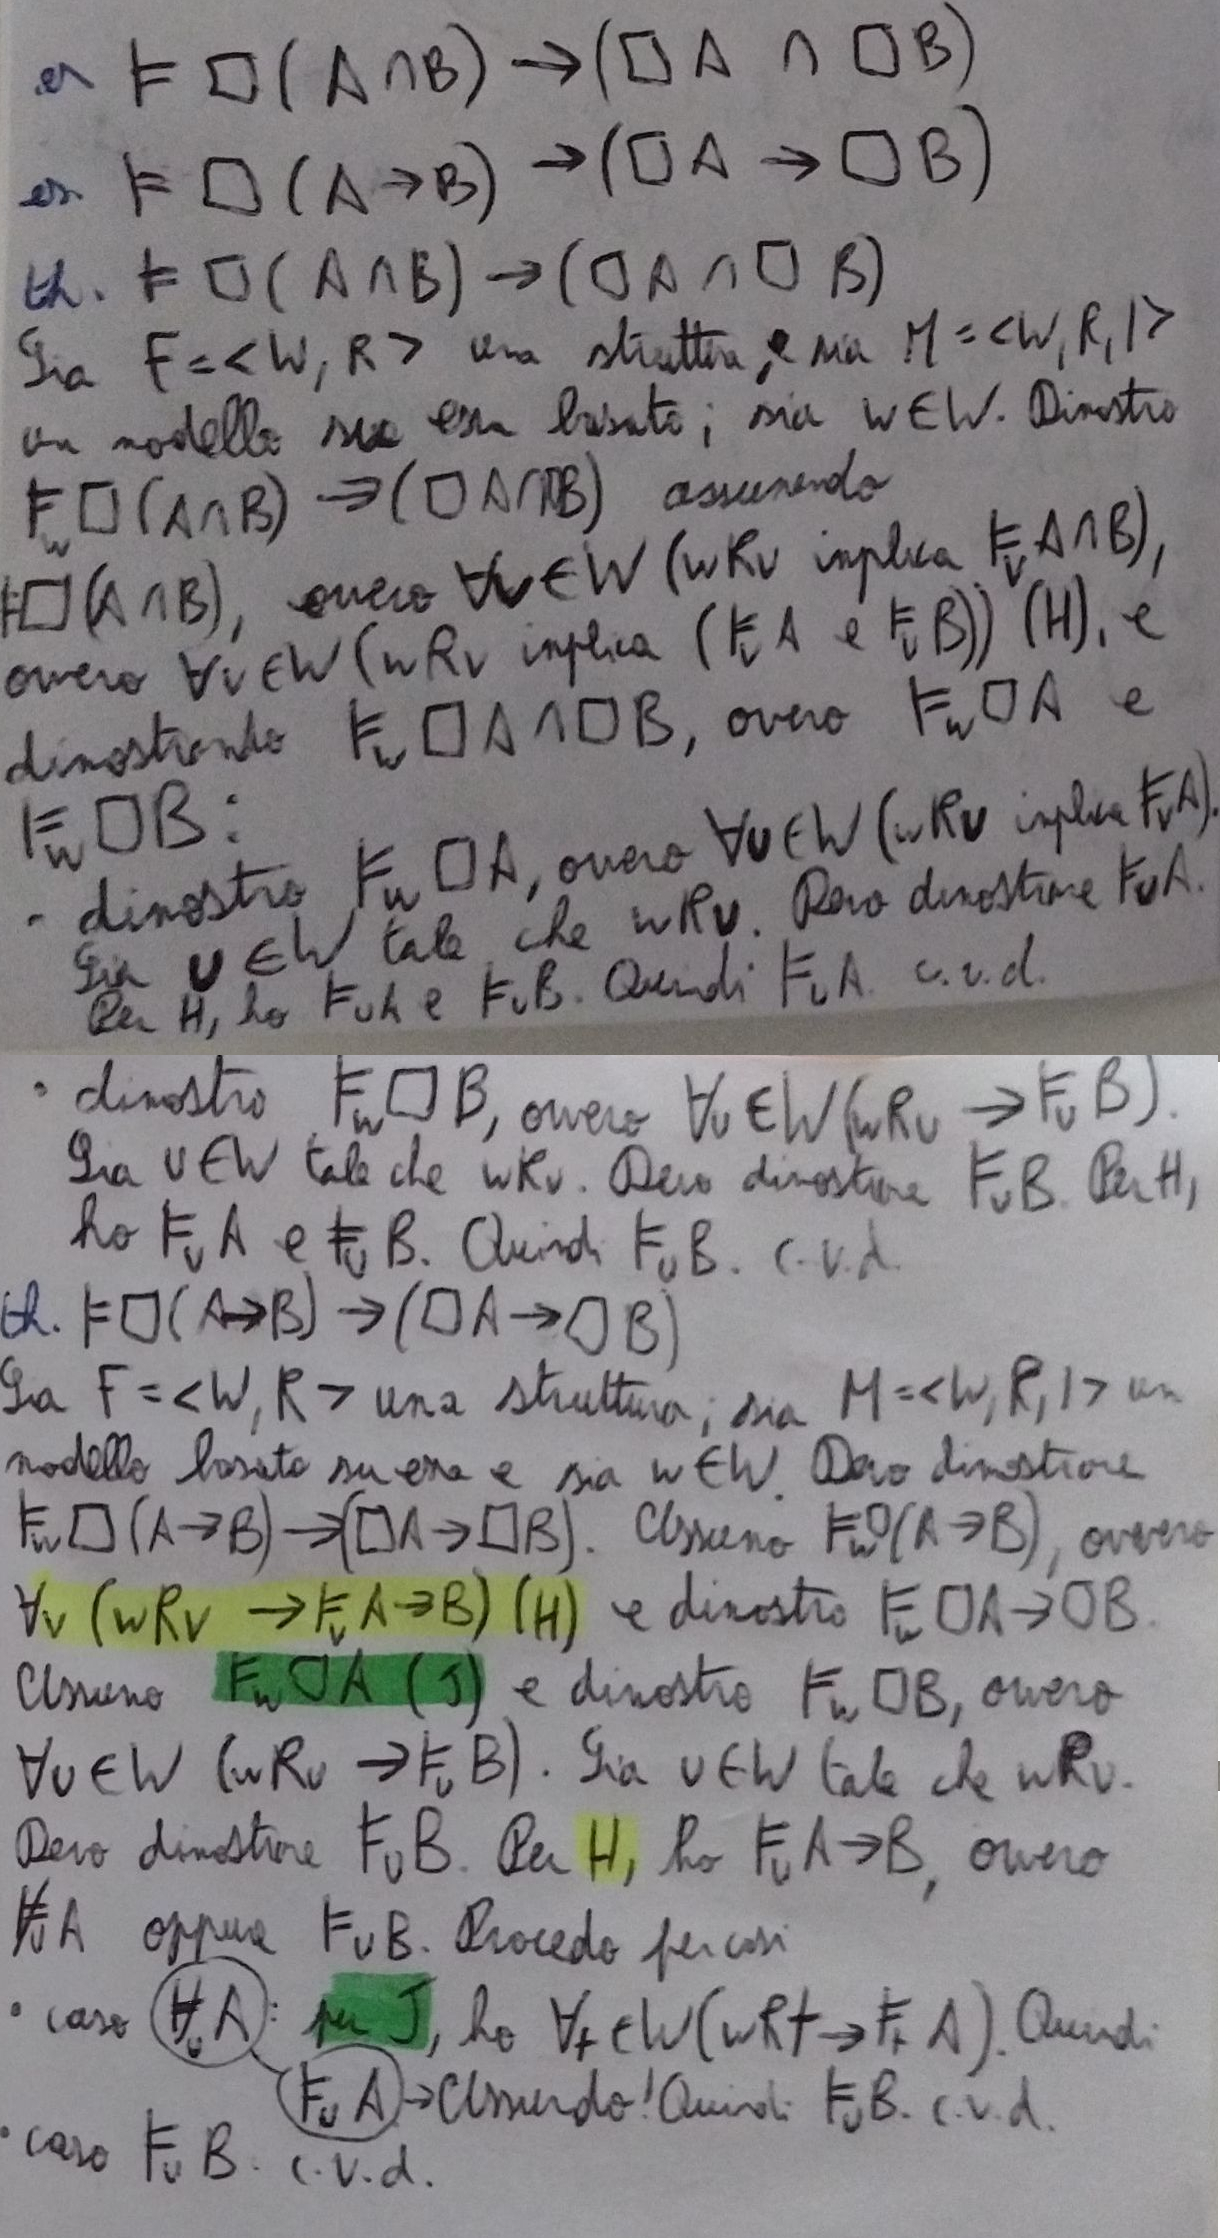 es ⊨ □(A∩B) → (□A ∩ □B)
es. ⊨ □(A→B) → (□A → □B)
th. ⊨ □(A∩B) → (□A ∩ □B)
Sia F = <W, R> una struttura, e sia M = <W, R, I>
un modello su essa basato; sia w∈W. Dimostro
⊨w □(A∩B) → (□A∩□B) assumendo
⊨□(A∩B), ovvero ∀v∈W (wRv implica ⊨v A∩B),
ovvero ∀v∈W (wRv implica (⊨v A e ⊨v B)) (H), e
dimostrando ⊨w □A∩□B, ovvero ⊨w □A e
⊨w □B:
- dimostro ⊨w □A, ovvero ∀u∈W (wRu implica ⊨u A).
Sia u∈W tale che wRu. Devo dimostrare ⊨u A.
Per H, ho ⊨u A e ⊨u B. Quindi ⊨u A. c.v.d.
• dimostro ⊨w □B, ovvero ∀u∈W (wRu → ⊨u B).
Sia u∈W tale che wRu. Devo dimostrare ⊨u B. Per H,
ho ⊨u A e ⊨u B. Quindi ⊨u B. c.v.d.
th. ⊨□(A→B) → (□A→□B)
Sia F = <W, R> una struttura; sia M = <W, R, I> un
modello basato su essa e sia w∈W. Devo dimostrare
⊨w □(A→B) → (□A→□B). Assumo ⊨w □(A→B), ovvero
∀v (wRv → ⊨v A→B) (H) e dimostro ⊨w □A→□B.
Assumo ⊨w □A (J) e dimostro ⊨w □B, ovvero
∀u∈W (wRu → ⊨u B). Sia u∈W tale che wRu.
Devo dimostrare ⊨u B. Per H, ho ⊨u A→B, ovvero
⊭u A oppure ⊨u B. Procedo per casi
• caso ⊭u A: per J, ho ∀t∈W (wRt → ⊨t A). Quindi
⊨u A → Assurdo! Quindi ⊨u B. c.v.d.
• caso ⊨u B. c.v.d.